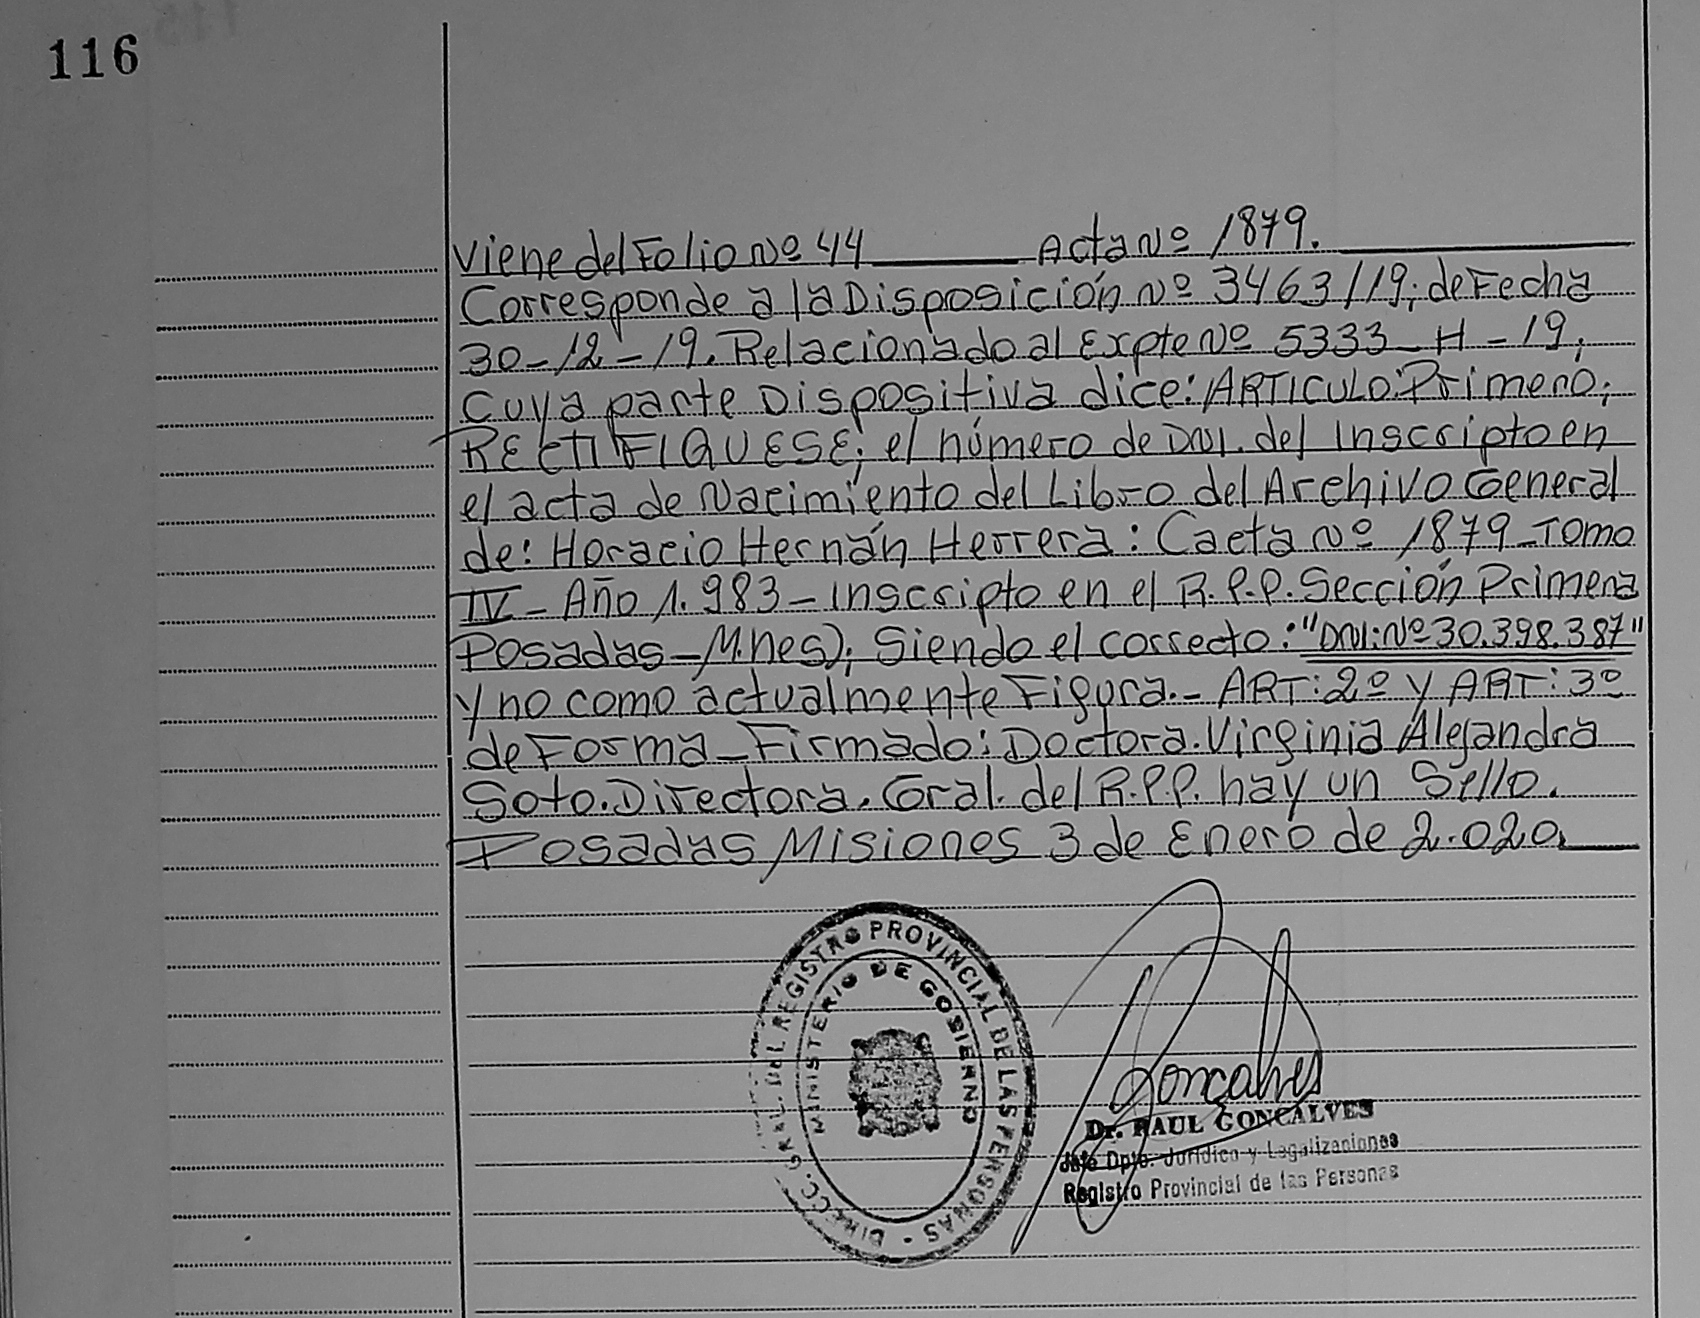 116
Viene del Folio Nº 44 Acta Nº 1879.
Corresponde a la Disposición Nº 3463/19; de Fecha
30-12-19. Relacionado al Expte Nº 5333-H-19;
Cuya parte Dispositiva dice: ARTICULO: Primero;
RECTIFIQUESE; el número de DNI. del Inscripto en
el acta de Nacimiento del Libro del Archivo General
de: Horacio Hernán Herrera: Caeta Nº 1879-Tomo
IV-Año 1.983-Inscripto en el R.P.P. Sección Primera
Posadas-Mnes); Siendo el correcto: "DNI: Nº 30.398.387"
y no como actualmente Figura.- ART: 2º y ART: 3º
de Forma-Firmado: Doctora. Virginia Alejandra
Soto. Directora. Gral. del R.P.P. hay un Sello.
Posadas Misiones 3 de Enero de 2.020.
DIRECC. GRAL. DEL REGISTRO PROVINCIAL DE LAS PERSONAS -
MINISTERIO DE GOBIERNO
Goncalves
Dr. RAUL GONCALVES
Jefe Dpto. Jurídico y Legalizaciones
Registro Provincial de las Personas